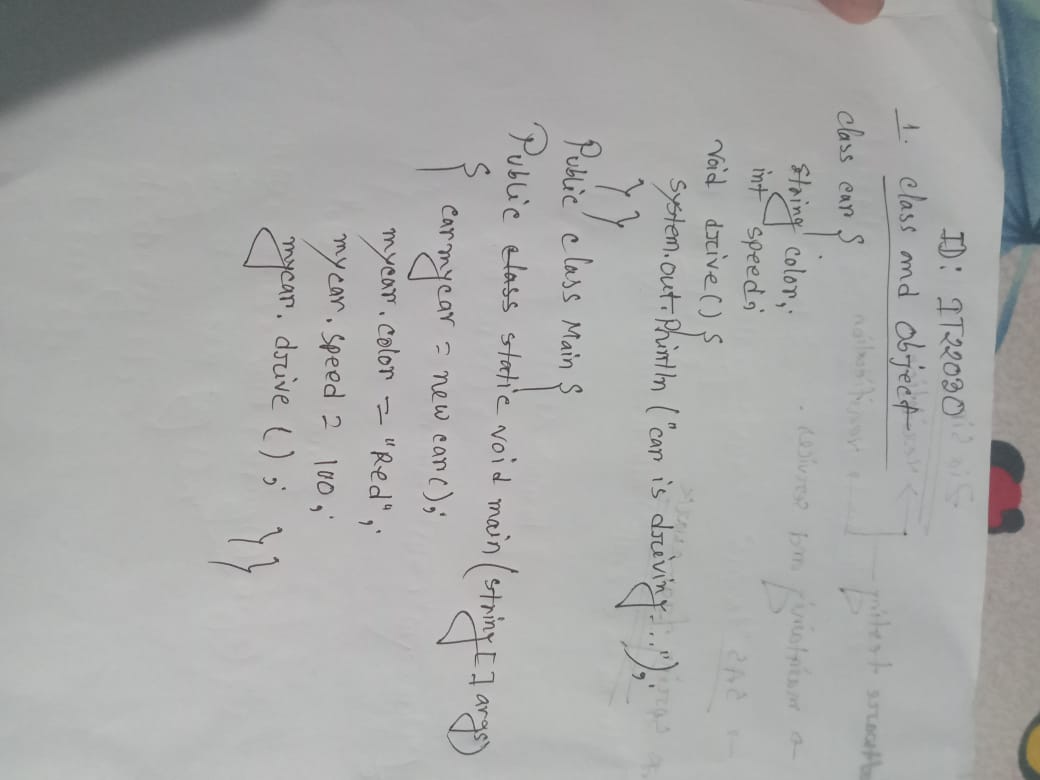 ID: IT22030
1. class and Object
class car {
string color;
int speed;
void drive() {
system.out.Println ("car is driving...");
} }
Public class Main {
Public class static void main (string [] args)
{ car mycar = new car();
mycar.color = "Red";
mycar.speed = 100;
mycar.drive (); } }